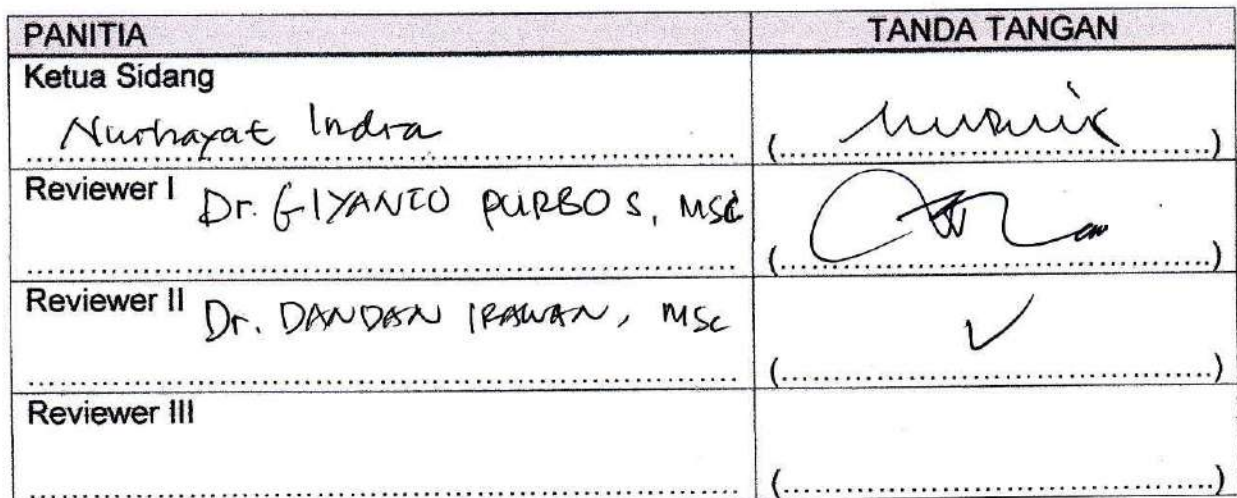 PANITIA TANDA TANGAN
Ketua Sidang
Nurhayat Indra
(........................................)
Reviewer I Dr. GIYANTO PURBO S, MSc
(........................................)
Reviewer II Dr. DANDAN IRAWAN, MSc
(........................................)
Reviewer III
(........................................)